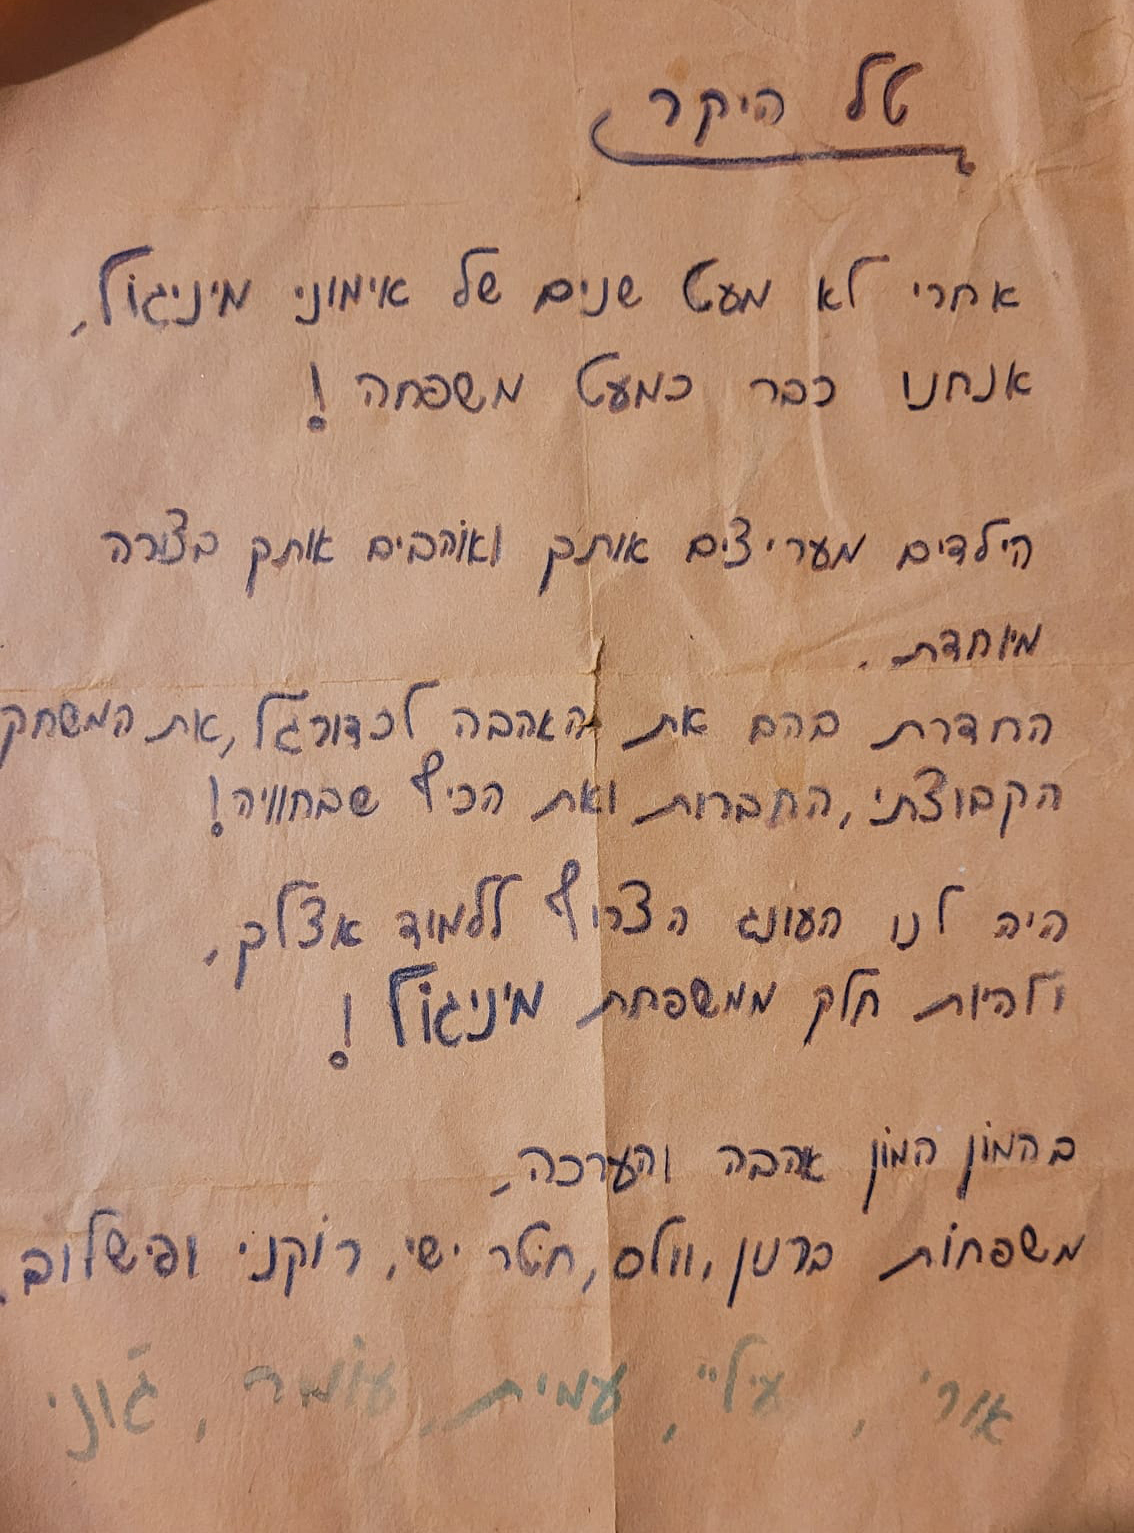 טל היקר
אחרי לא מעט שנים של אימוני מיניגול,
אנחנו כבר כמעט משפחה!
הילדים מעריצים אותך ואוהבים אותך בצורה
מיוחדת.
החדרת בהם את האהבה לכדורגל, את המשחק
הקבוצתי, החברות ואת הכיף שבחוויה!
היה לנו העונג הצרוף ללמוד אצלך,
ולהיות חלק ממשפחת מיניגול!
בהמון המון אהבה והערכה,
משפחות ברנון, וולס, חטר ישי, רוקני ופישלוב.
אורי, עילי, עמית, עומר, ג'וני